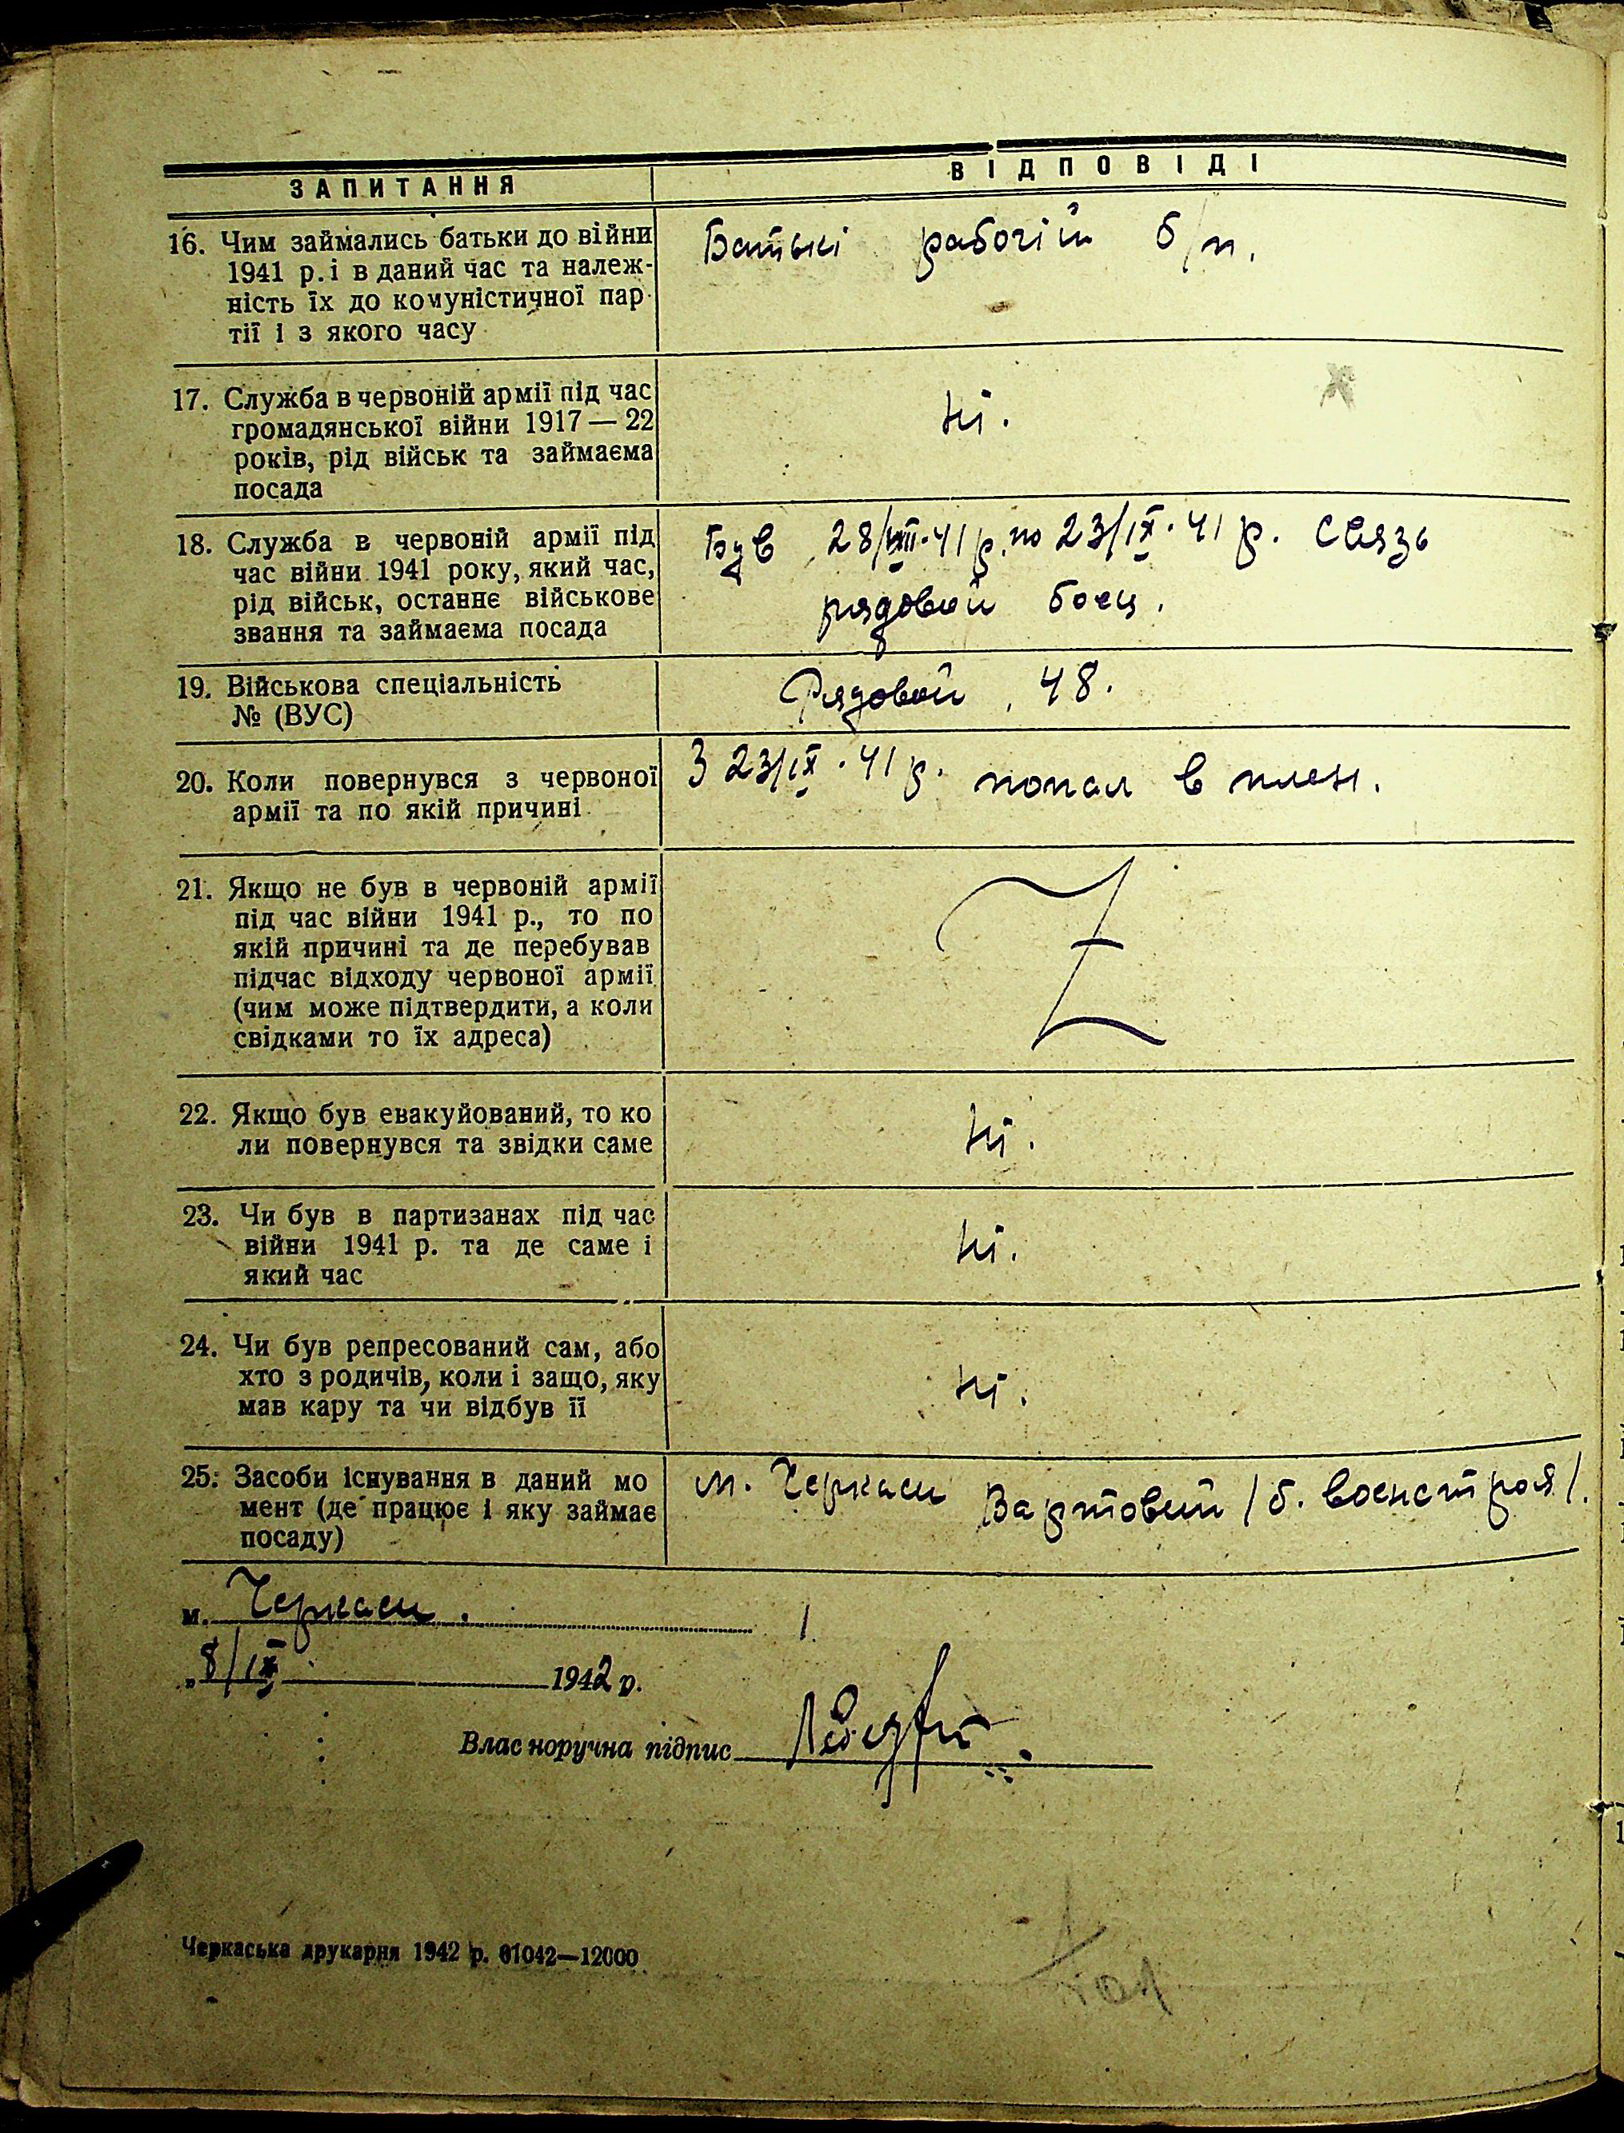 ЗАПИТАННЯ ВІДПОВІДІ
16. Чим займались батьки до війни
1941 р. і в даний час та належ-
ність їх до комуністичної пар
тії і з якого часу
Батькі рабочій б/п.
17. Служба в червоній армії під час
громадянської війни 1917 — 22
років, рід військ та займаєма
посада
Ні.
18. Служба в червоній армії під
час війни 1941 року, який час,
рід військ, останнє військове
звання та займаєма посада
Був 28/VIII·41 р. по 23/IX·41 р. связь
рядовой боец.
19. Військова спеціальність
№ (ВУС)
Рядовой, 48.
20. Коли повернувся з червоної
армії та по якій причині
З 23/IX·41 р. попал в плен.
21. Якщо не був в червоній армії
під час війни 1941 р., то по
якій причині та де перебував
підчас відходу червоної армії
(чим може підтвердити, а коли
свідками то їх адреса)
Z
22. Якщо був евакуйований, то ко
ли повернувся та звідки саме
Ні.
23. Чи був в партизанах під час
війни 1941 р. та де саме і
який час
Ні.
24. Чи був репресований сам, або
хто з родичів, коли і защо, яку
мав кару та чи відбув її
Ні.
25. Засоби існування в даний мо
мент (де працює і яку займає
посаду)
м. Черкаси Вартовий /б. военстроя/.
м. Черкаси.
„8/IX 1942 р.
Власноручна підпис
Черкаська друкарня 1942 р. 01042—12000